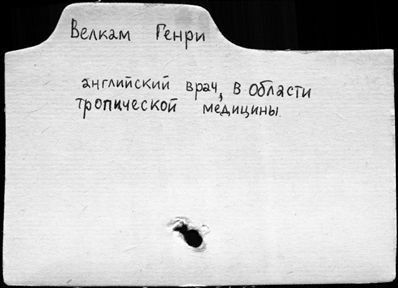 Велкам Генри
английский врач, в области
тропической медицины.